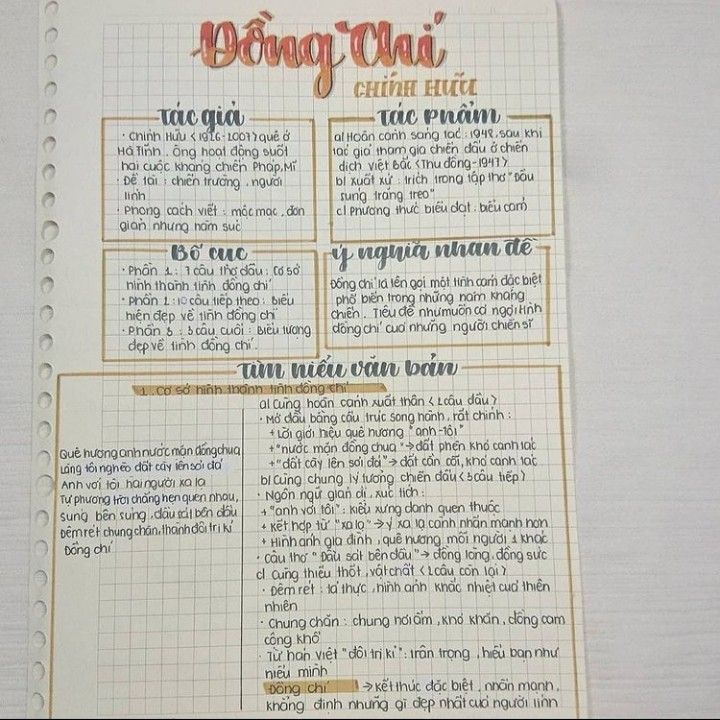 Đồng Chí
CHÍNH HỮU
Tác giả
· Chính Hữu <1926-2007> quê ở
Hà Tĩnh. Ông hoạt động suốt
hai cuộc kháng chiến Pháp, Mĩ
· Đề tài: chiến trường, người
lính
· Phong cách viết: mộc mạc, đơn
giản nhưng hàm súc
Tác phẩm
a| Hoàn cảnh sáng tác: 1948, sau khi
tác giả tham gia chiến đấu ở chiến
dịch Việt Bắc <Thu đông-1947>
b| xuất xứ: trích trong tập thơ "Đầu
súng trăng treo"
c| Phương thức biểu đạt: biểu cảm
Bố cục
· Phần 1: 7 câu thơ đầu: cơ sở
hình thành tình đồng chí
· Phần 2: 10 câu tiếp theo: biểu
hiện đẹp về tình đồng chí
· Phần 3: 3 câu cuối: Biểu tượng
đẹp về tình đồng chí.
Ý nghĩa nhan đề
Đồng chí là tên gọi một tình cảm đặc biệt
phổ biến trong những năm kháng
chiến. Tiêu đề như muốn ca ngợi tình
đồng chí của những người chiến sĩ
Tìm hiểu văn bản
1. Cơ sở hình thành tình đồng chí
Quê hương anh nước mặn đồng chua
Làng tôi nghèo đất cày lên sỏi đá
Anh với tôi hai người xa lạ
Tự phương trời chẳng hẹn quen nhau,
Súng bên súng, đầu sát bên đầu
Đêm rét chung chăn, thành đôi tri kỉ
Đồng chí
a| Cùng hoàn cảnh xuất thân <2 câu đầu>
· Mở đầu bằng cấu trúc song hành, rất chỉnh:
+ Lời giới thiệu quê hương "anh-tôi"
+ "nước mặn đồng chua" → đất phèn khó canh tác
+ "đất cày lên sỏi đá" → đất cằn cỗi, khó canh tác
b| Cùng chung lý tưởng chiến đấu <3 câu tiếp>
· Ngôn ngữ giản dị, xúc tích:
+ "anh với tôi": kiểu xưng danh quen thuộc
+ Kết hợp từ "xa lạ" → ý xa lạ càng nhấn mạnh hơn
+ Hình ảnh gia đình, quê hương mỗi người 1 khác
· Câu thơ "Đầu sát bên đầu" → đồng lòng, đồng sức
c| Cùng thiếu thốt, vật chất <2 câu còn lại>
· Đêm rét: tả thực, hình ảnh khắc nhiệt của thiên
nhiên
· Chung chăn: chung hơi ấm, khó khăn, đồng cam
cộng khổ
· Từ hán việt "đôi tri kỉ": trân trọng, hiểu bạn như
hiểu mình
Đồng chí → kết thúc đặc biệt, nhấn mạnh,
khẳng định những gì đẹp nhất của người lính